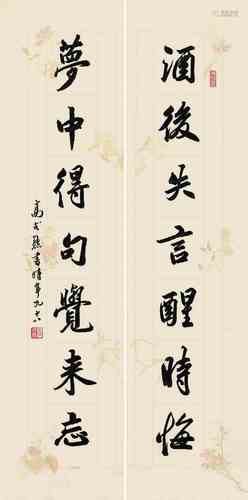 酒後失言醒時悔
夢中得句覺来忘
高式熊書時年九十八